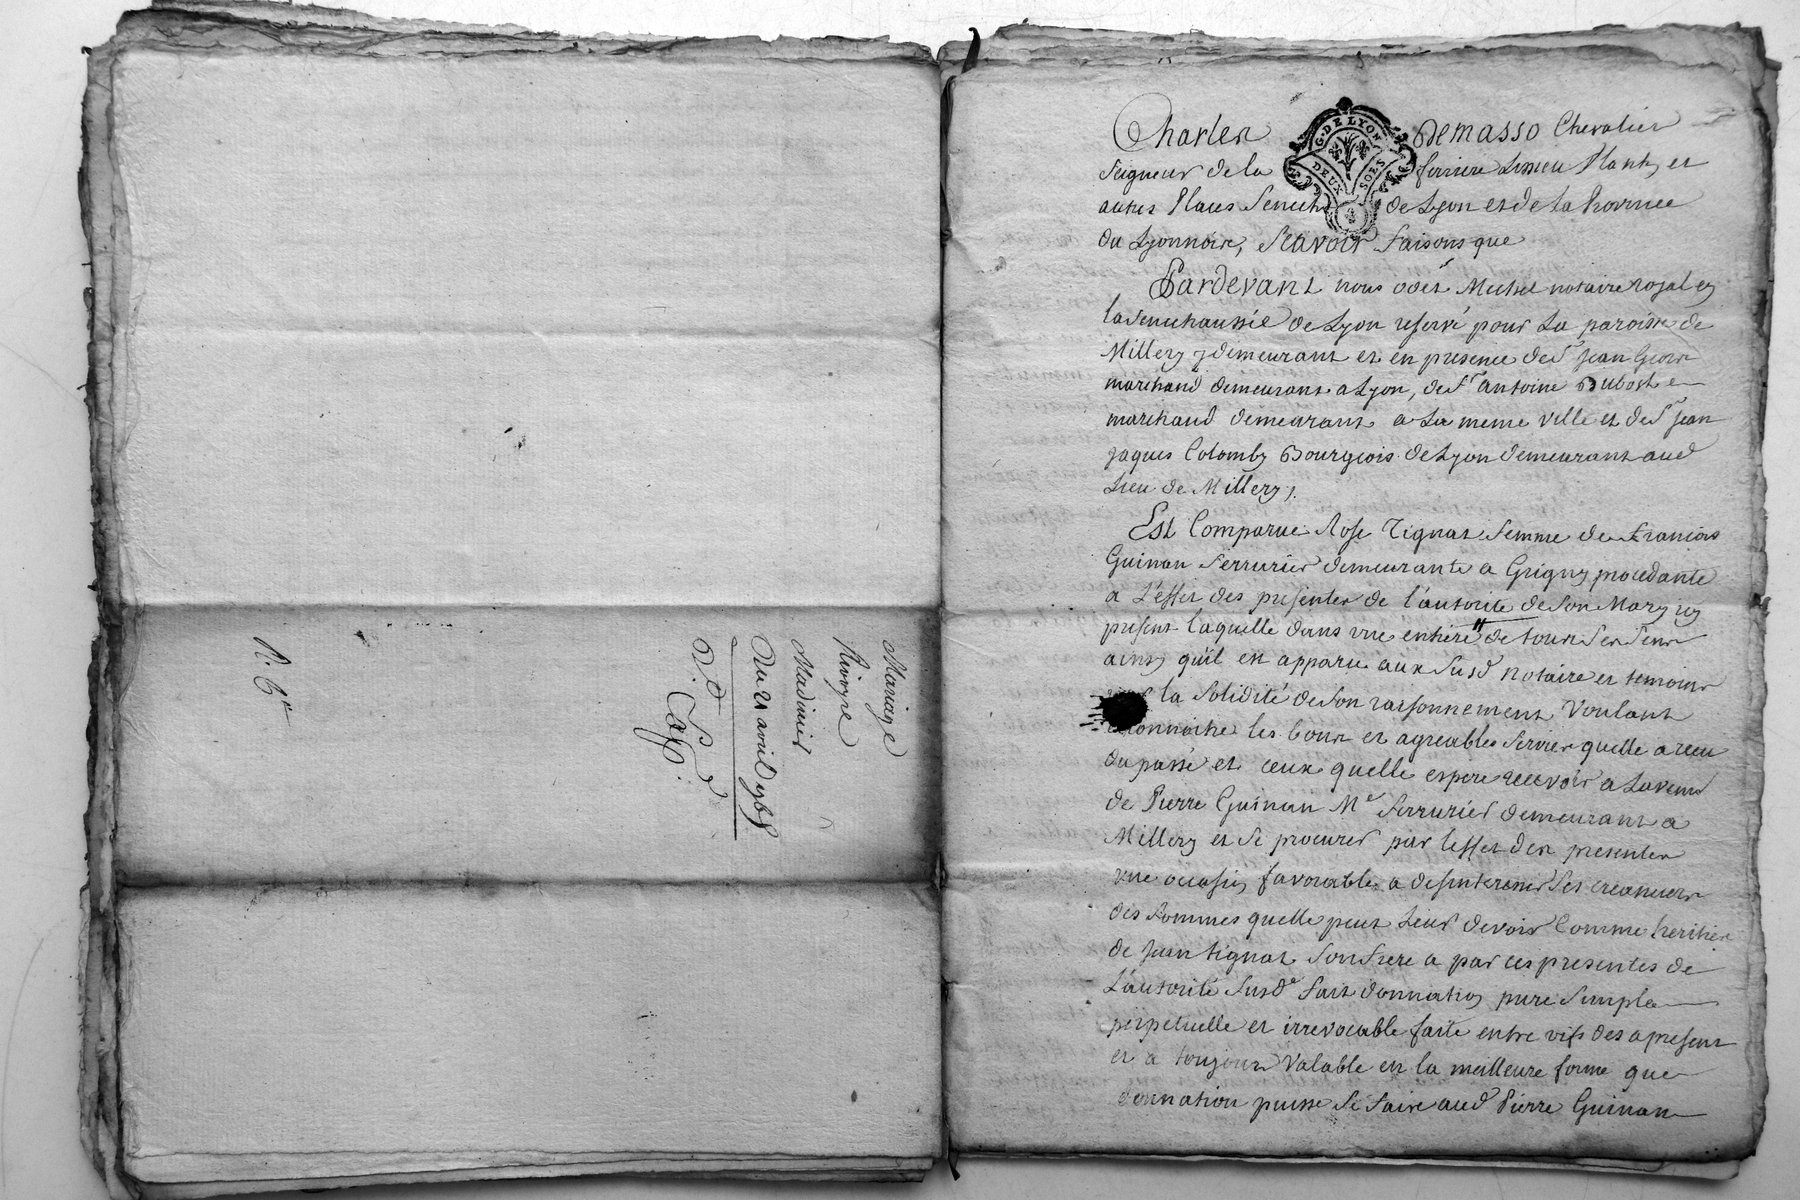 Mariage
Rivoyre
Madinier
Du 21 avril
Charles Demasso Chevalier
G. DE LYON
DEUX SOLS
seigneur de la ferriere Lissieu Plantig et
autres Places Senechal de Lyon et de la Province
du Lyonnois, Scavoir faisons que
Pardevant nous odet Michel notaire royal en
la senechaussée de Lyon reservé pour La paroisse de
Millery y demeurant et en presence de Sr jean
marchand demeurant a Lyon, de Sr antoine Dubost
marchand demeurant a La meme ville et de Sr jean
jaques Colomby Bourgeois de Lyon demeurant aud
Lieu de Millery.
Est Comparue Rose Tignat femme de Francois
Guinan Serrurier demeurante a Grigny procedante
a L'effet des presentes de l'autorité de son Mary icy
present laquelle dans une entiere " de tous ses sens
ainsy qu'il est apparu aux susd notaire et temoins
la solidité de son raisonnement Voulant
reconnoitre les bons et agreables services quelle a reçu
du passé et ceux quelle espere recevoir a Lavenir
de Pierre Guinan Me Serrurier demeurant a
Millery et se procurer par leffet des presentes
une occasion favorable a desinteresser ses creanciers
des sommes quelle peut Leur devoir Comme heritiere
de jean tignat son frere a par ces presentes de
L'autorité susde fait donnation pure simple
perpetuelle et irrevocable faite entre vifs des apresent
et a toujours Valable en la meilleure forme que
donnation puisse se faire aud Pierre Guinan